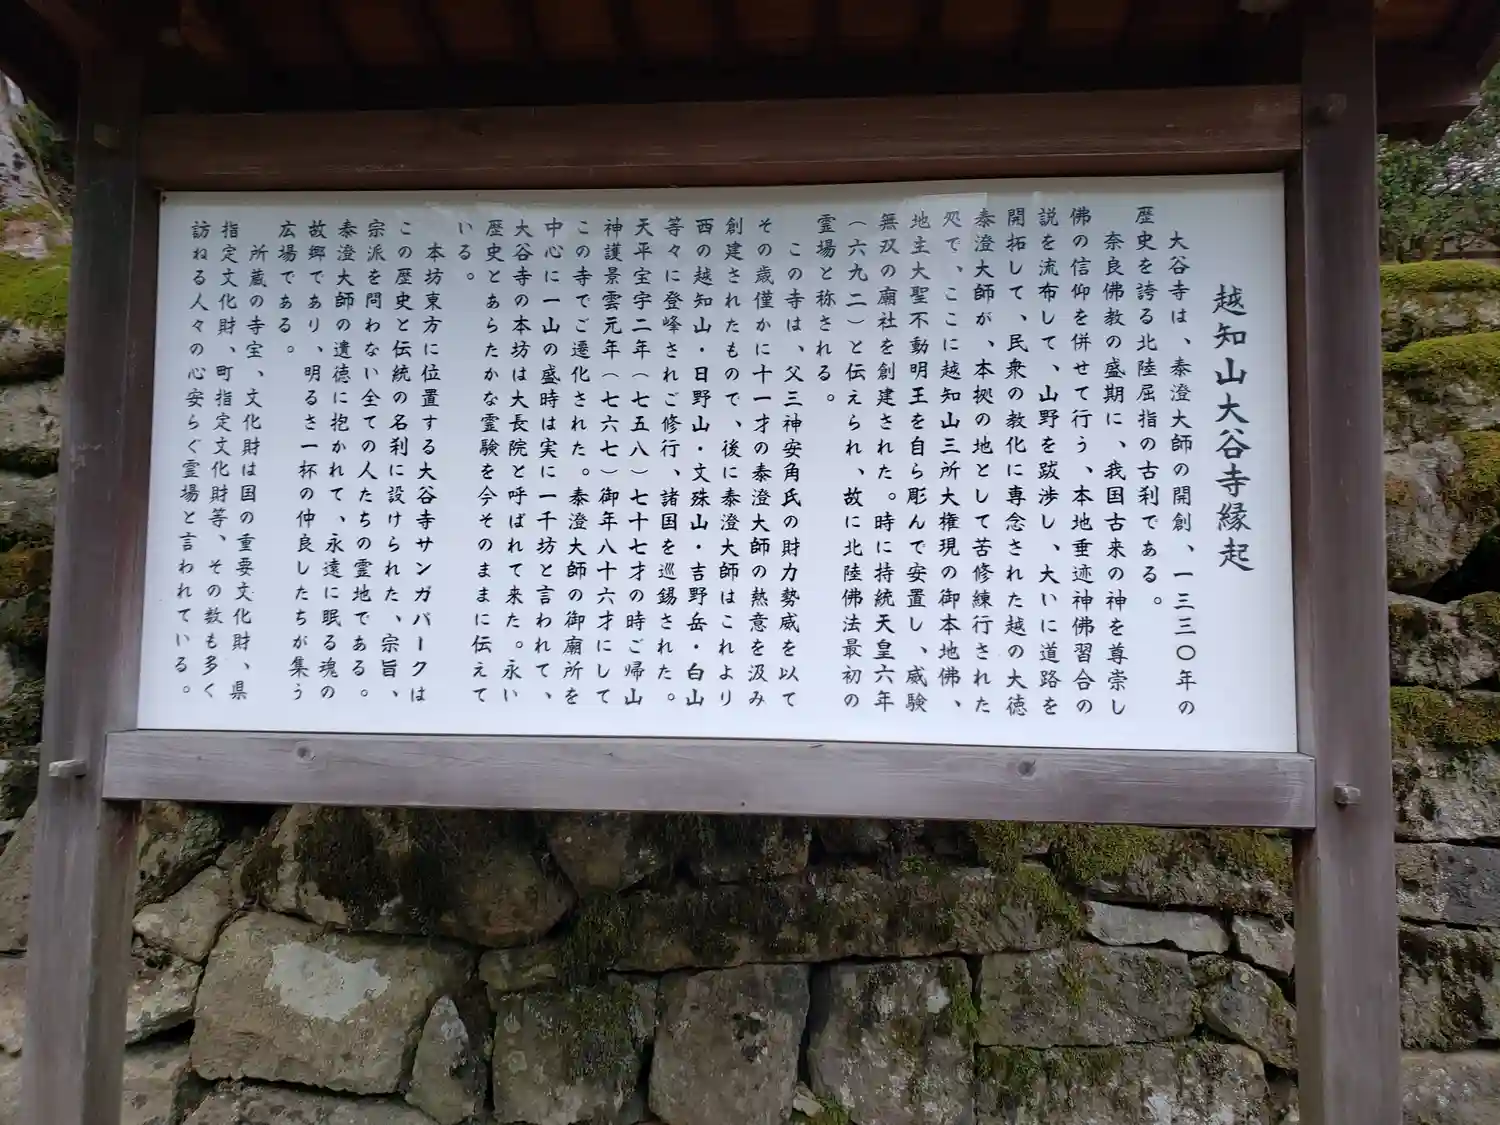 越知山大谷寺縁起
大谷寺は、泰澄大師の開創、一三三〇年の
歴史を誇る北陸屈指の古刹である。
奈良佛教の盛期に、我国古来の神を尊崇し
佛の信仰を併せて行う、本地垂迹神佛習合の
説を流布して、山野を跋渉し、大いに道路を
開拓して、民衆の教化に専念された越の大徳
泰澄大師が、本拠の地として苦修練行された
処で、ここに越知山三所大権現の御本地佛、
地主大聖不動明王を自ら彫んで安置し、威験
無双の廟社を創建された。時に持統天皇六年
（六九二）と伝えられ、故に北陸佛法最初の
霊場と称される。
この寺は、父三神安角氏の財力勢威を以て
その歳僅かに十一才の泰澄大師の熱意を汲み
創建されたもので、後に泰澄大師はこれより
西の越知山・日野山・文殊山・吉野岳・白山
等々に登峰されご修行、諸国を巡錫された。
天平宝字二年（七五八）七十七才の時ご帰山
神護景雲元年（七六七）御年八十六才にして
この寺でご遷化された。泰澄大師の御廟所を
中心に一山の盛時は実に一千坊と言われて、
大谷寺の本坊は大長院と呼ばれて来た。永い
歴史とあらたかな霊験を今そのままに伝えて
いる。
本坊東方に位置する大谷寺サンガパークは
この歴史と伝統の名刹に設けられた、宗旨、
宗派を問わない全ての人たちの霊地である。
泰澄大師の遺徳に抱かれて、永遠に眠る魂の
故郷であり、明るさ一杯の仲良したちが集う
広場である。
所蔵の寺宝、文化財は国の重要文化財、県
指定文化財、町指定文化財等、その数も多く
訪ねる人々の心安らぐ霊場と言われている。